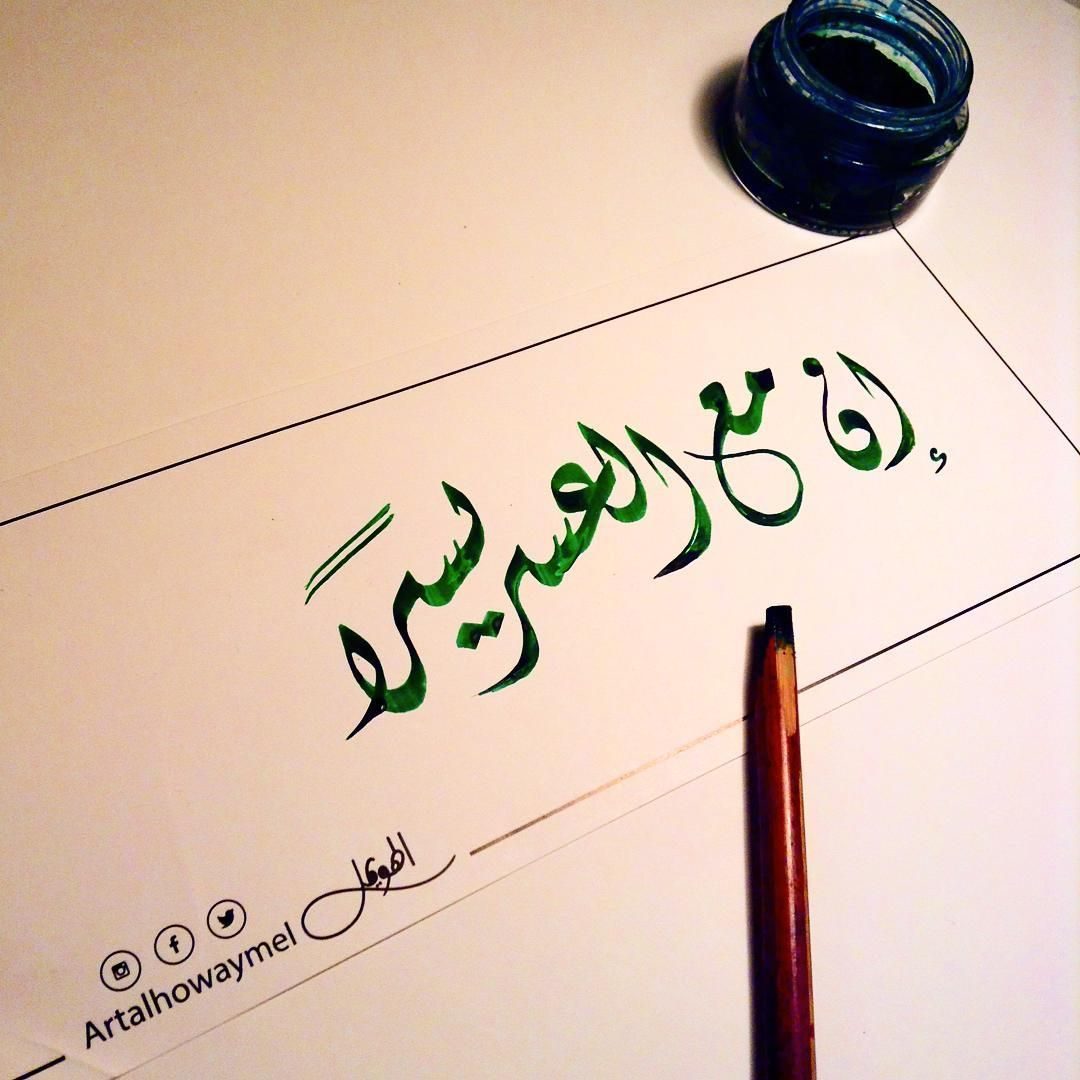 إن مع العسر يسراً
الهويمل
Artalhowaymel